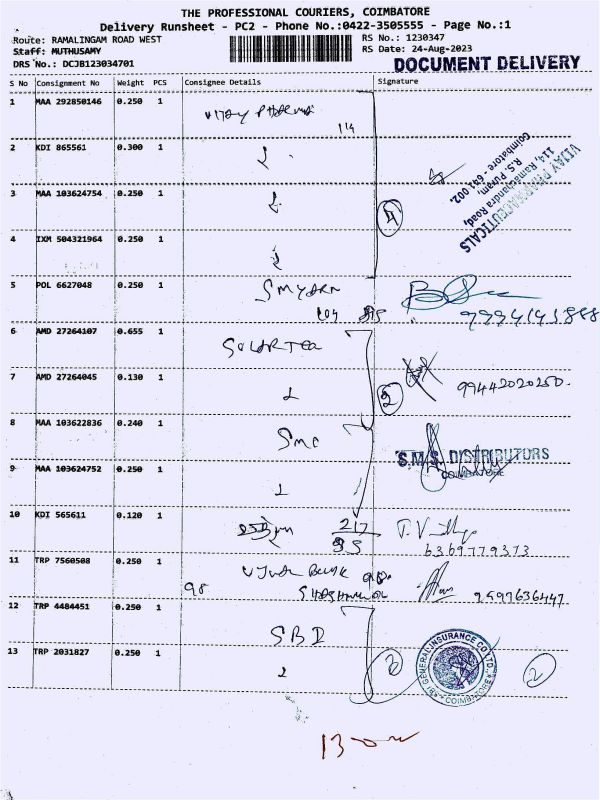 THE PROFESSIONAL COURIERS, COIMBATORE
Delivery Runsheet - PC2 - Phone No.:0422-3505555 - Page No.:1
Route: RAMALINGAM ROAD WEST
RS No.: 1230347
Staff: MUTHUSAMY
RS Date: 24-Aug-2023
DRS No.: DCJB123034701
DOCUMENT DELIVERY
S No Consignment No Weight PCS Consignee Details Signature
1 MAA 292850146 0.250 1
114
2 KDI 865561 0.300 1
VIJAY PHARMACEUTICALS
114, Ramachandra Road,
R.S. Puram,
Coimbatore - 641 002.
3 MAA 103624754 0.250 1
4
4 IXM 504321964 0.250 1
5 POL 6627048 0.250 1
6 AMD 27264107 0.655 1
7 AMD 27264045 0.130 1
2
99442020250.
8 MAA 103622836 0.240 1 SMC
S.M.S. DISTRIBUTORS
COIMBATORE
9 MAA 103624752 0.250 1
10 KDI 565611 0.120 1
217
95
6369779373
11 TRP 7560508 0.250 1
98
9597636447
12 TRP 4484451 0.250 1
SBI
13 TRP 2031827 0.250 1
SBI GENERAL INSURANCE CO. LTD.
COIMBATORE
2